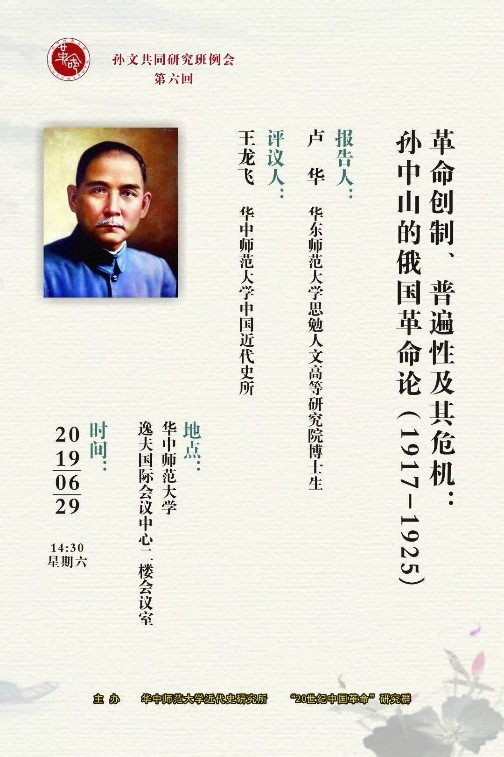 孙文共同研究班例会
第六回
革命创制、普遍性及其危机：
孙中山的俄国革命论（1917-1925）
报告人：
卢 华 华东师范大学思勉人文高等研究院博士生
评议人：
王龙飞 华中师范大学中国近代史所
地点：
华中师范大学
逸夫国际会议中心二楼会议室
时间：
20
19
06
29
14:30
星期六
主 办 华中师范大学近代史研究所 “20世纪中国革命”研究群